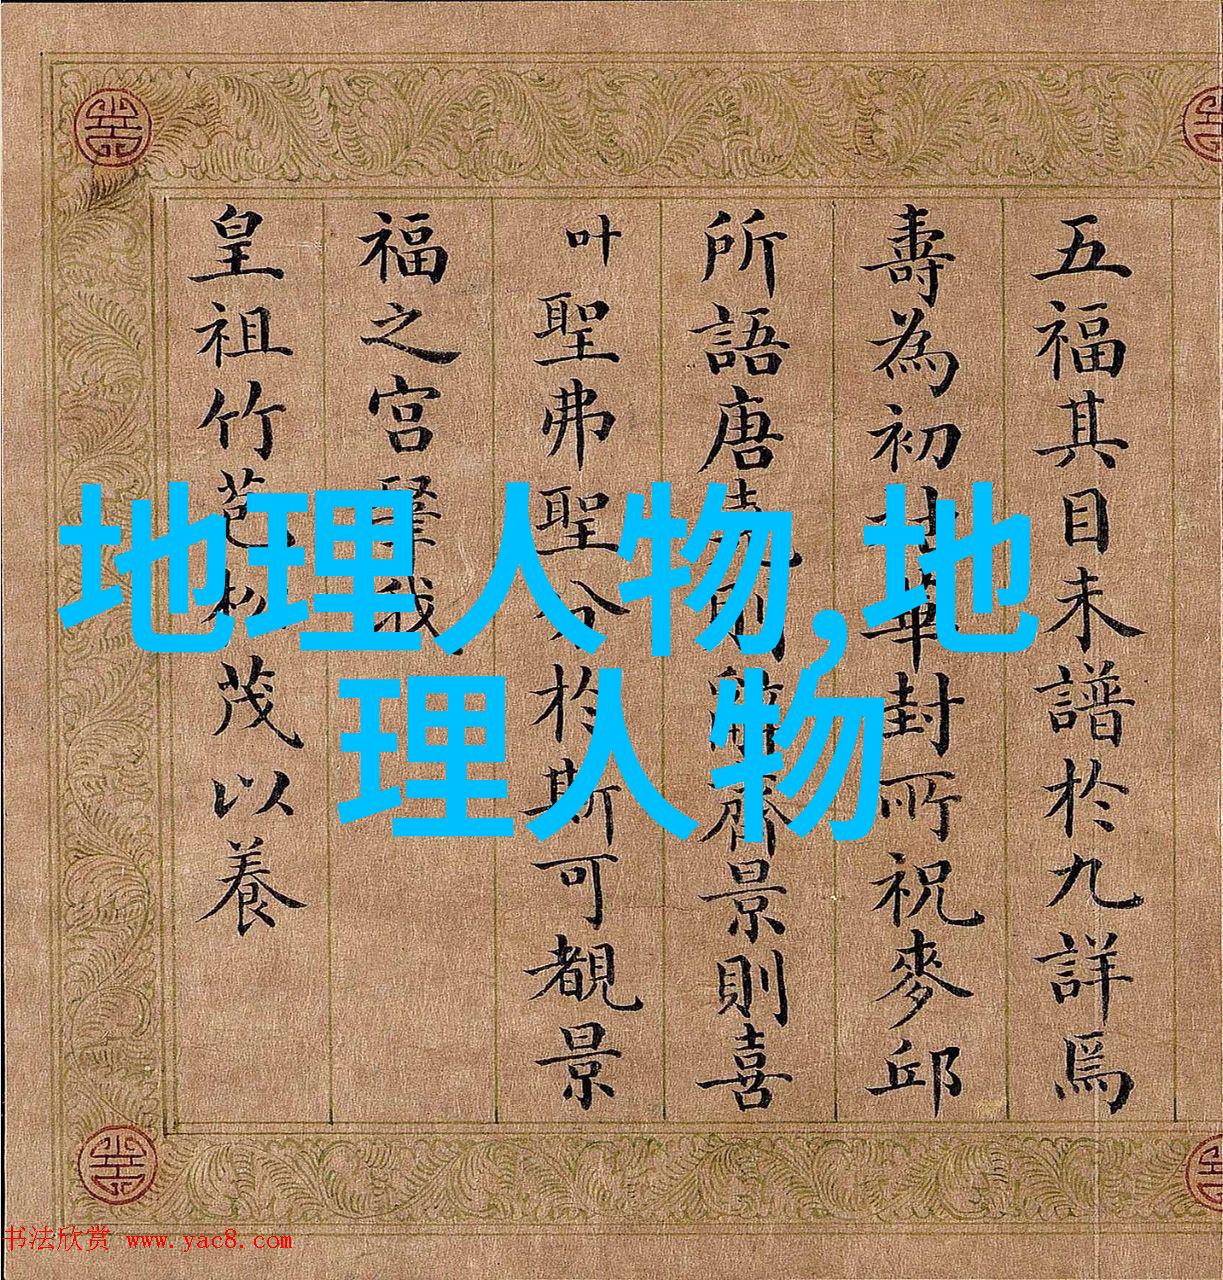 地理人物,地
理人物
五福其目未譜於九詳爲
壽為初華封所祝麥邱
所語唐堯則辭齊景則喜
叶聖弗聖分於斯可覩景
福之宮肇我
皇祖竹苞松茂以養
书法欣赏 www.yac8.com